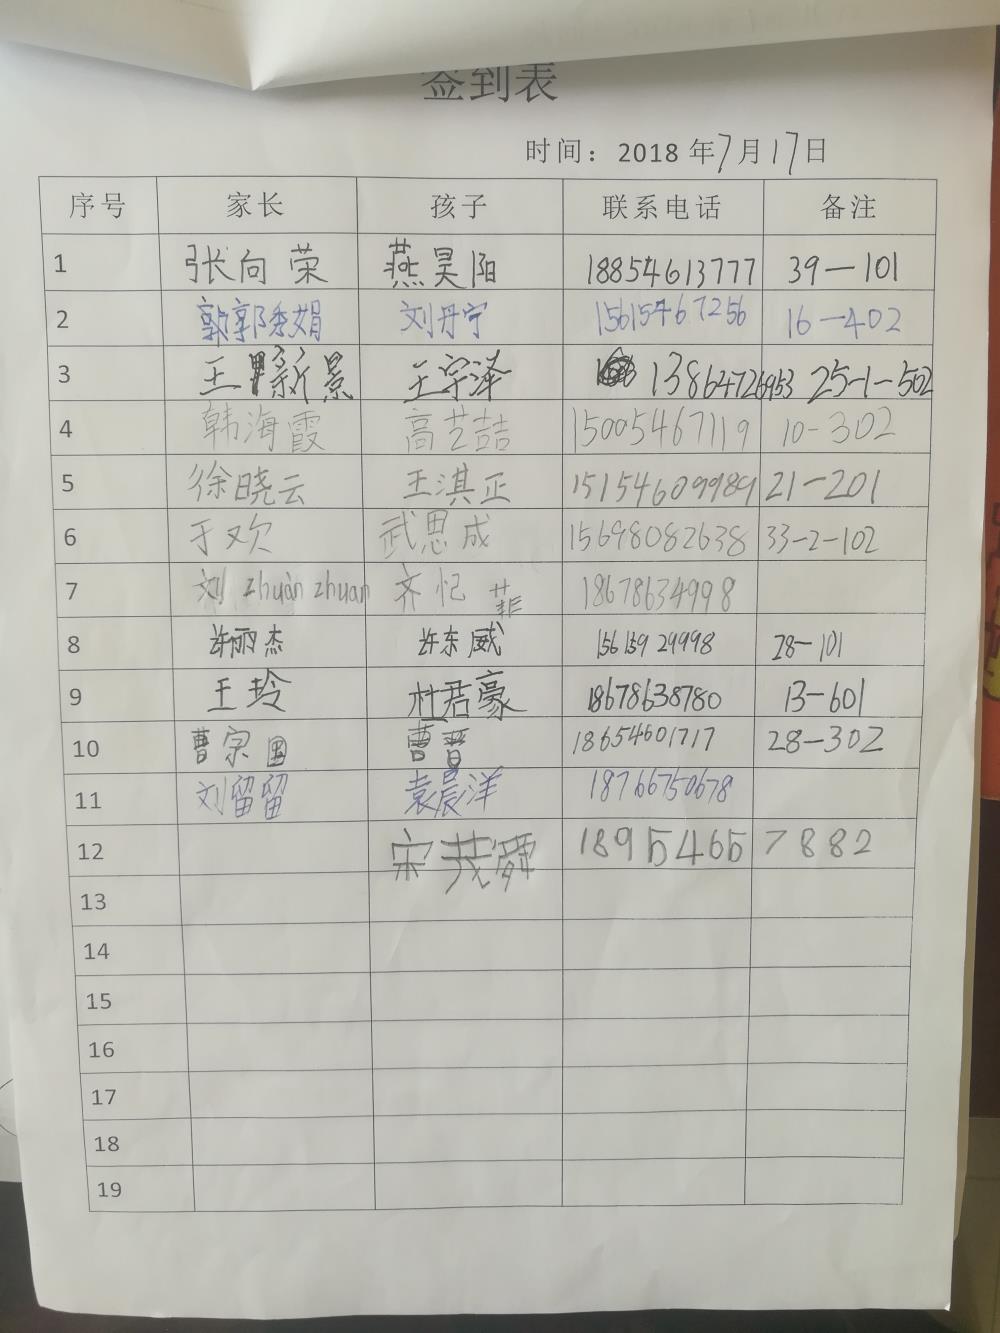 签到表
时间：2018年7月17日
序号 家长 孩子 联系电话 备注
1 张向荣 燕昊阳 18854613777 39-101
2 郭秀娟 刘丹宁 15615467256 16-402
3 王新景 王宇泽 13864726953 25-1-502
4 韩海霞 高艺喆 15005467119 10-302
5 徐晓云 王淇正 15154609989 21-201
6 于欢 武思成 15698082638 33-2-102
7 刘zhuàn zhuan 齐忆菲 18678634998
8 许丽杰 许东威 15613929998 28-101
9 王玲 杜君豪 18678638780 13-601
10 曹宗国 曹晋 18654601717 28-302
11 刘留留 袁晨洋 18766750678
12 宋茂舜 18954657882
13
14
15
16
17
18
19